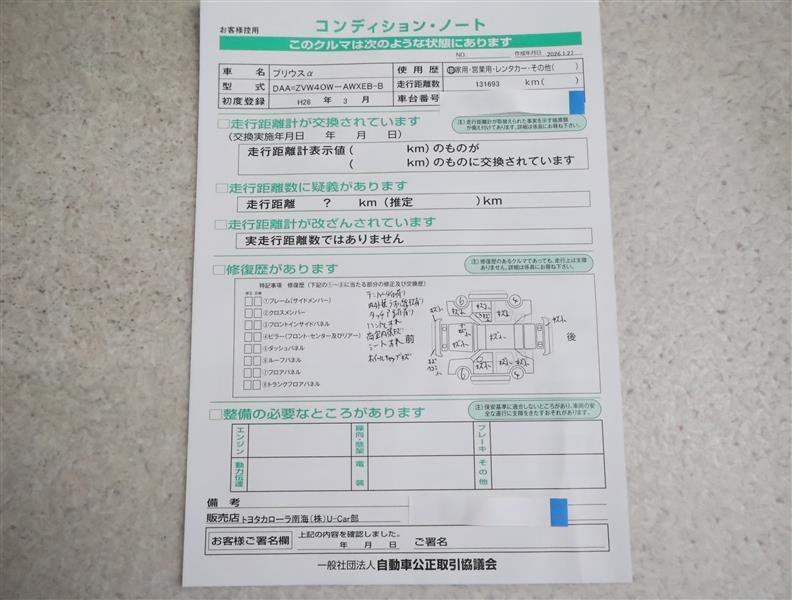 お客様控用
コンディション・ノート
このクルマは次のような状態にあります
NO. 作成年月日 2026.1.27
車名 プリウスα 使用歴 自家用・営業用・レンタカー・その他( )
型式 DAA=ZVW40W-AWXEB-B 走行距離数 131693 km( )
初度登録 H26 年 3 月 車台番号
□走行距離計が交換されています
(注)走行距離計が取替えられた事実を示す帳票類が備え付けてあります。詳細は係員にお尋ね下さい。
(交換実施年月日 年 月 日)
走行距離計表示値( km)のものが
( km)のものに交換されています
□走行距離数に疑義があります
走行距離 ? km(推定 )km
□走行距離計が改ざんされています
実走行距離数ではありません
□修復歴があります
(注)修復歴のあるクルマであっても、走行上は支障ありません。詳細は係員にお尋ね下さい。
特記事項 修復歴(下記の①~⑧に当たる部分の修正及び交換歴)
修正 交換
①フレーム(サイドメンバー)
②クロスメンバー
③フロントインサイドパネル
④ピラー(フロント・センター及びリアー)
⑤ダッシュパネル
⑥ルーフパネル
⑦フロアパネル
⑧トランクフロアパネル
ハンドルすれ
シートすれ
前
後
□整備の必要なところがあります
(注)保安基準に適合しないところがあり、車両の安全な運行に支障をきたすおそれがあります。
エンジン 操向・懸架 ブレーキ
動力伝達 電装 その他
備考
販売店 トヨタカローラ南海(株)U-Car部
お客様ご署名欄 上記の内容を確認しました。
年 月 日 ご署名
一般社団法人 自動車公正取引協議会